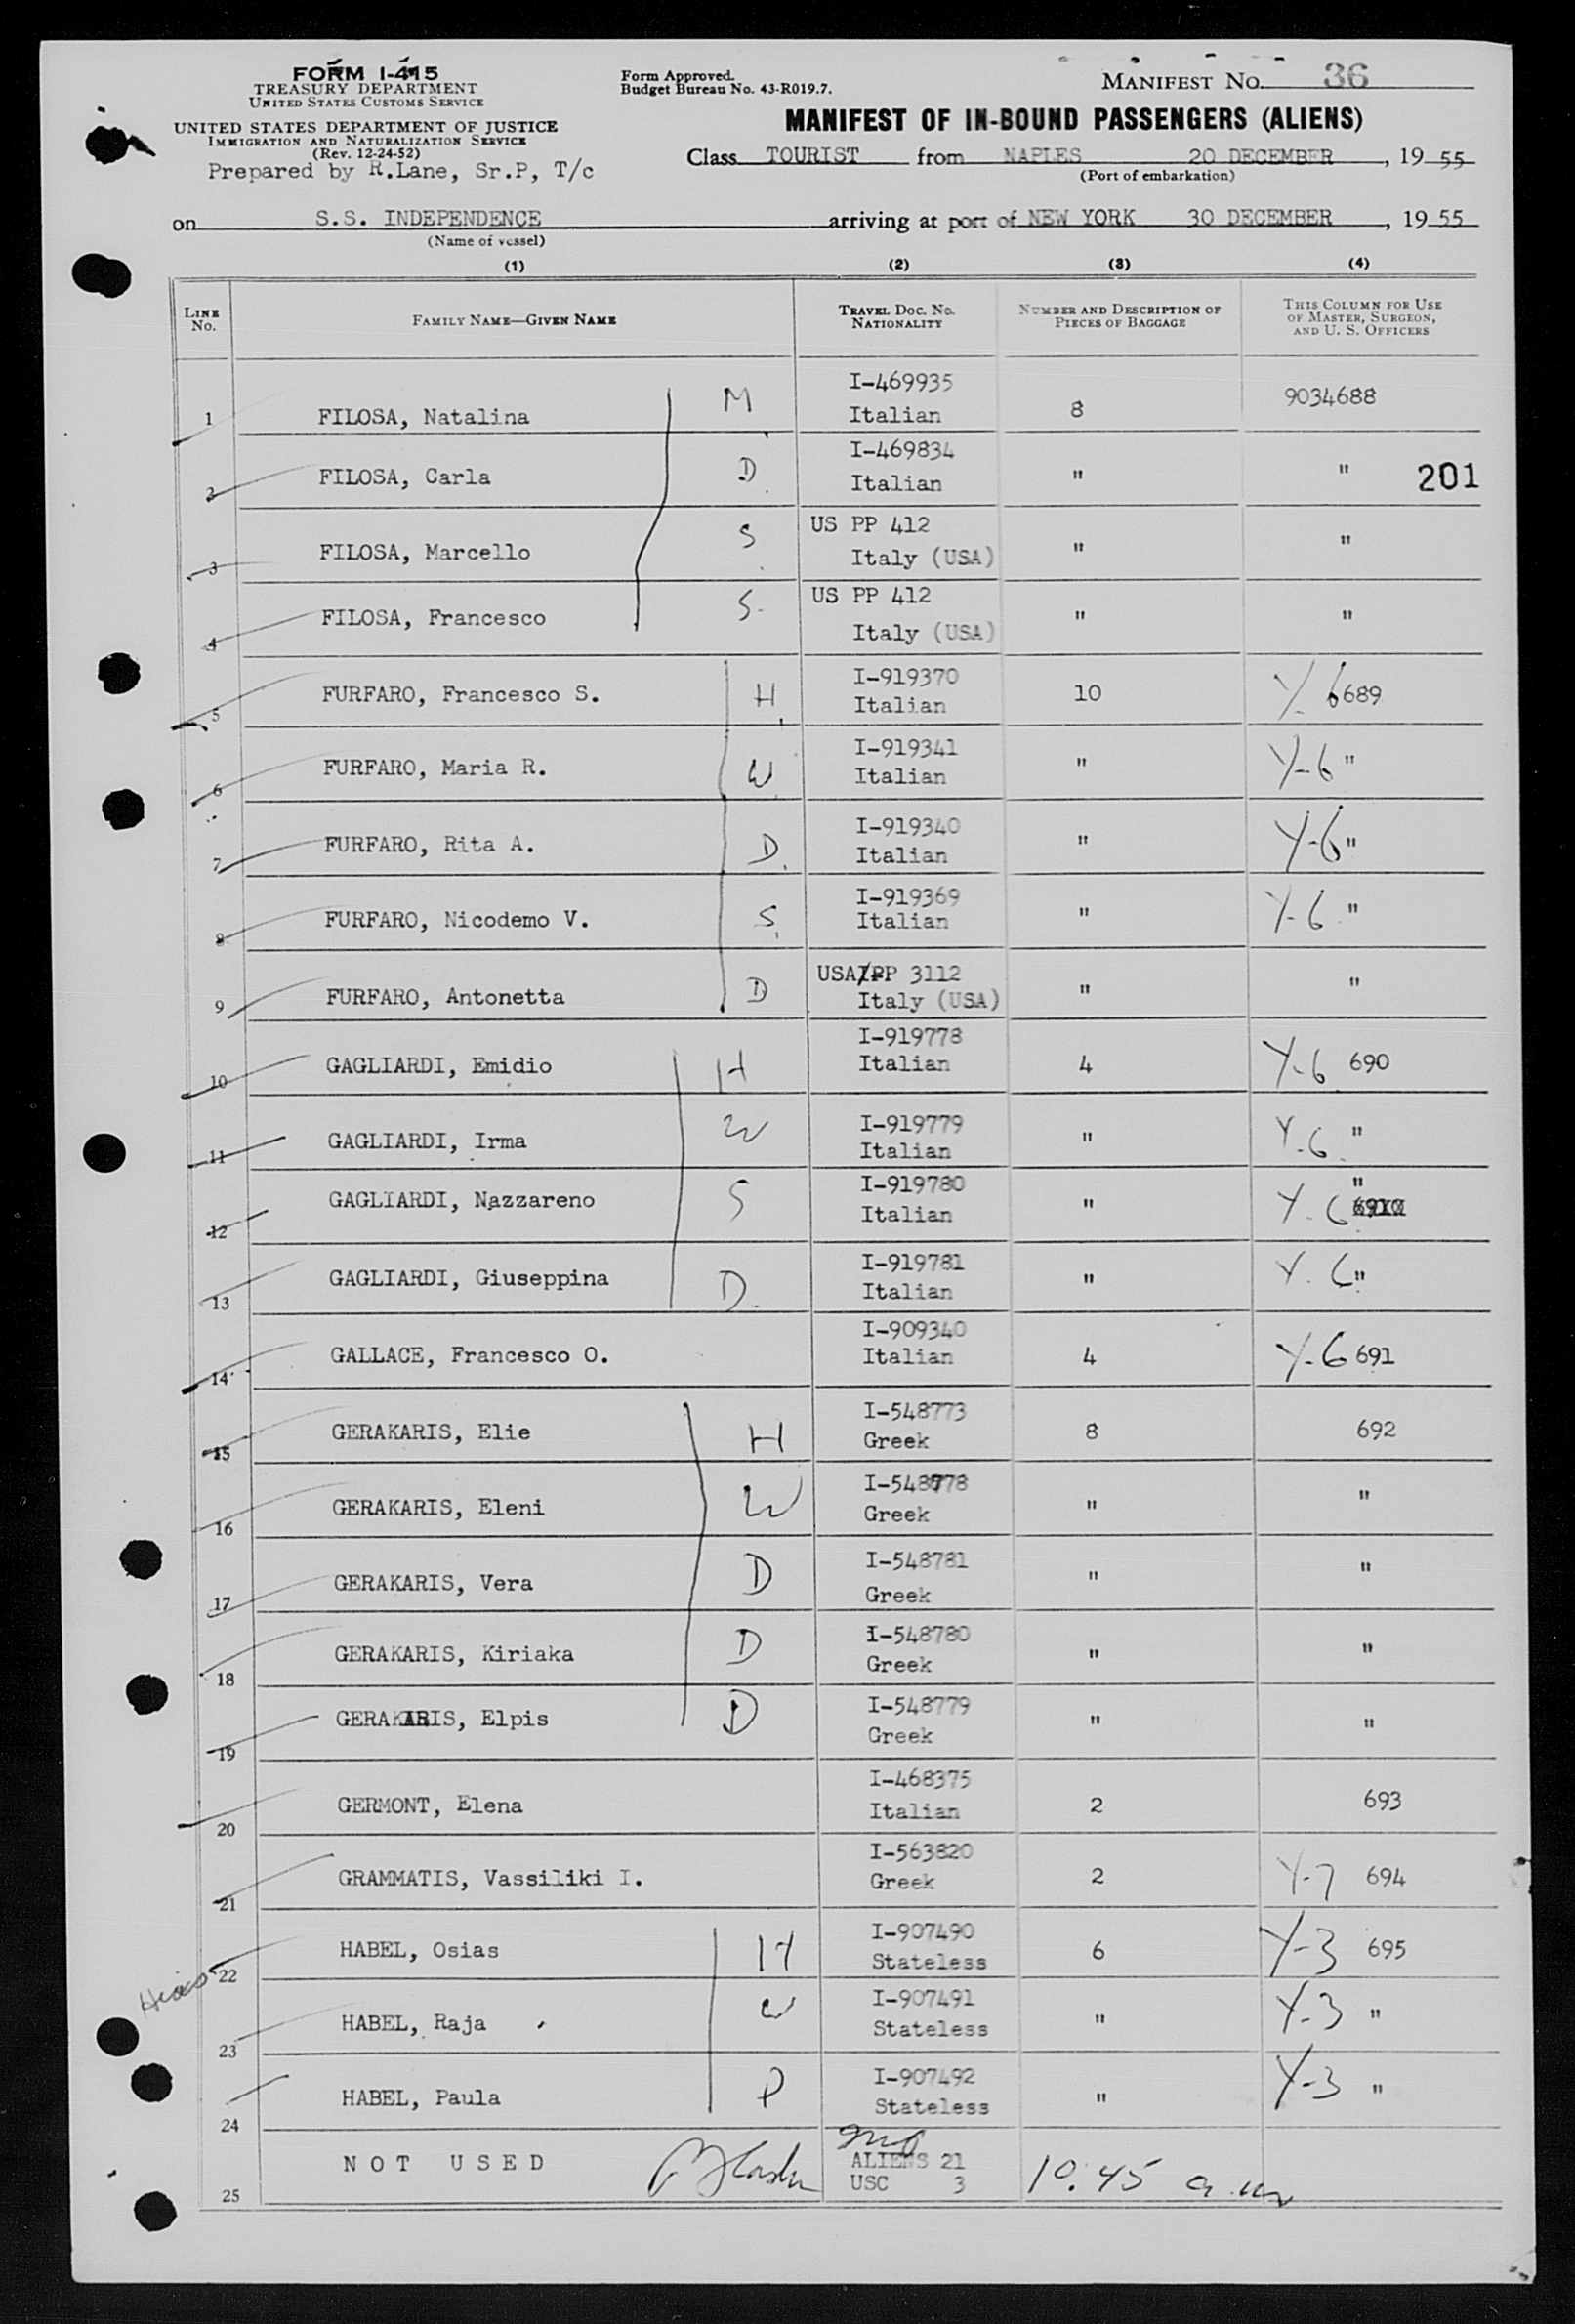 FORM I-415
TREASURY DEPARTMENT
UNITED STATES CUSTOMS SERVICE
UNITED STATES DEPARTMENT OF JUSTICE
IMMIGRATION AND NATURALIZATION SERVICE
(Rev. 12-24-52)
Prepared by R.Lane, Sr.P, T/c
Form Approved.
Budget Bureau No. 43-R019.7.
MANIFEST NO. 36
MANIFEST OF IN-BOUND PASSENGERS (ALIENS)
Class TOURIST from NAPLES 20 DECEMBER, 19 55
(Port of embarkation)
on S.S. INDEPENDENCE arriving at port of NEW YORK 30 DECEMBER, 19 55
(Name of vessel)
(1) (2) (3) (4)
LINE NO. FAMILY NAME—GIVEN NAME TRAVEL DOC. NO. NATIONALITY NUMBER AND DESCRIPTION OF PIECES OF BAGGAGE THIS COLUMN FOR USE OF MASTER, SURGEON, AND U. S. OFFICERS
1 FILOSA, Natalina M I-469935 Italian 8 9034688
2 FILOSA, Carla D I-469834 Italian " " 201
3 FILOSA, Marcello S US PP 412 Italy (USA) " "
4 FILOSA, Francesco S. US PP 412 Italy (USA) " "
5 FURFARO, Francesco S. H I-919370 Italian 10 Y- 6 689
6 FURFARO, Maria R. W I-919341 Italian " Y-6 "
7 FURFARO, Rita A. D I-919340 Italian " Y-6 "
8 FURFARO, Nicodemo V. S I-919369 Italian " Y-6 "
9 FURFARO, Antonetta D USA PP 3112 Italy (USA) " "
10 GAGLIARDI, Emidio H I-919778 Italian 4 Y-6 690
11 GAGLIARDI, Irma W I-919779 Italian " Y-6 "
12 GAGLIARDI, Nazzareno S I-919780 Italian " Y-6 "
13 GAGLIARDI, Giuseppina D. I-919781 Italian " Y-6 "
14 GALLACE, Francesco O. I-909340 Italian 4 Y-6 691
15 GERAKARIS, Elie H I-548773 Greek 8 692
16 GERAKARIS, Eleni W I-548778 Greek " "
17 GERAKARIS, Vera D I-548781 Greek " "
18 GERAKARIS, Kiriaka D I-548780 Greek " "
19 GERAKARIS, Elpis D I-548779 Greek " "
20 GERMONT, Elena I-468375 Italian 2 693
21 GRAMMATIS, Vassiliki I. I-563820 Greek 2 Y-7 694
Hias 22 HABEL, Osias H I-907490 Stateless 6 Y-3 695
23 HABEL, Raja W I-907491 Stateless " Y-3 "
24 HABEL, Paula D I-907492 Stateless " Y-3 "
25 NOT USED ALIENS 21 USC 3 10.45 a.m